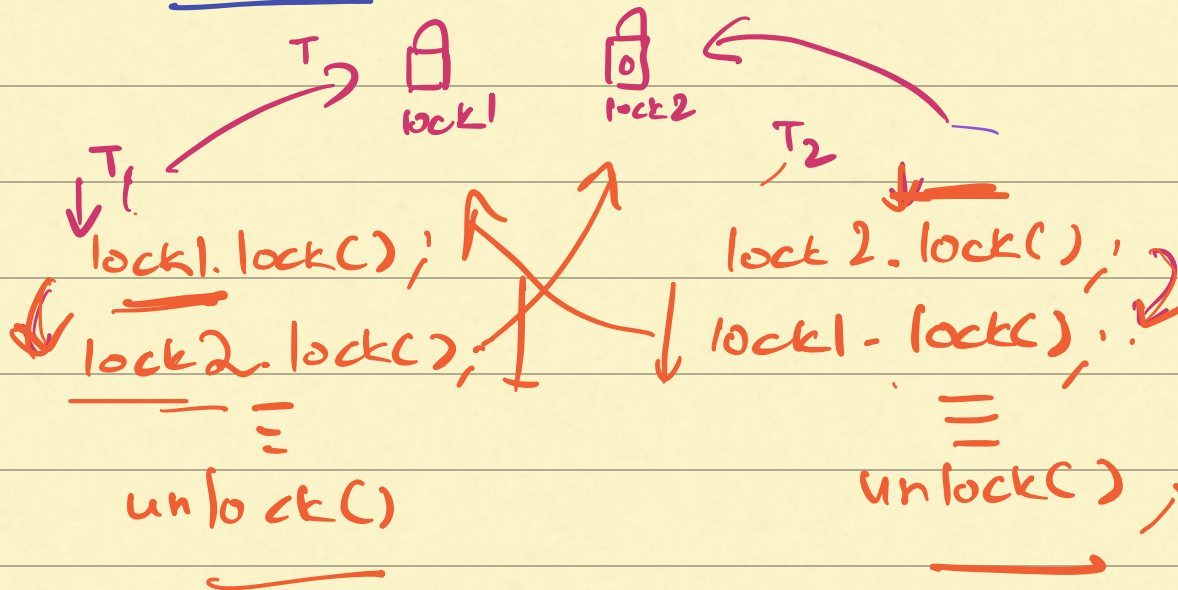 T
lock1 lock2
T1 T2
lock1.lock(); lock2.lock();
lock2.lock(); lock1.lock();
unlock() unlock();